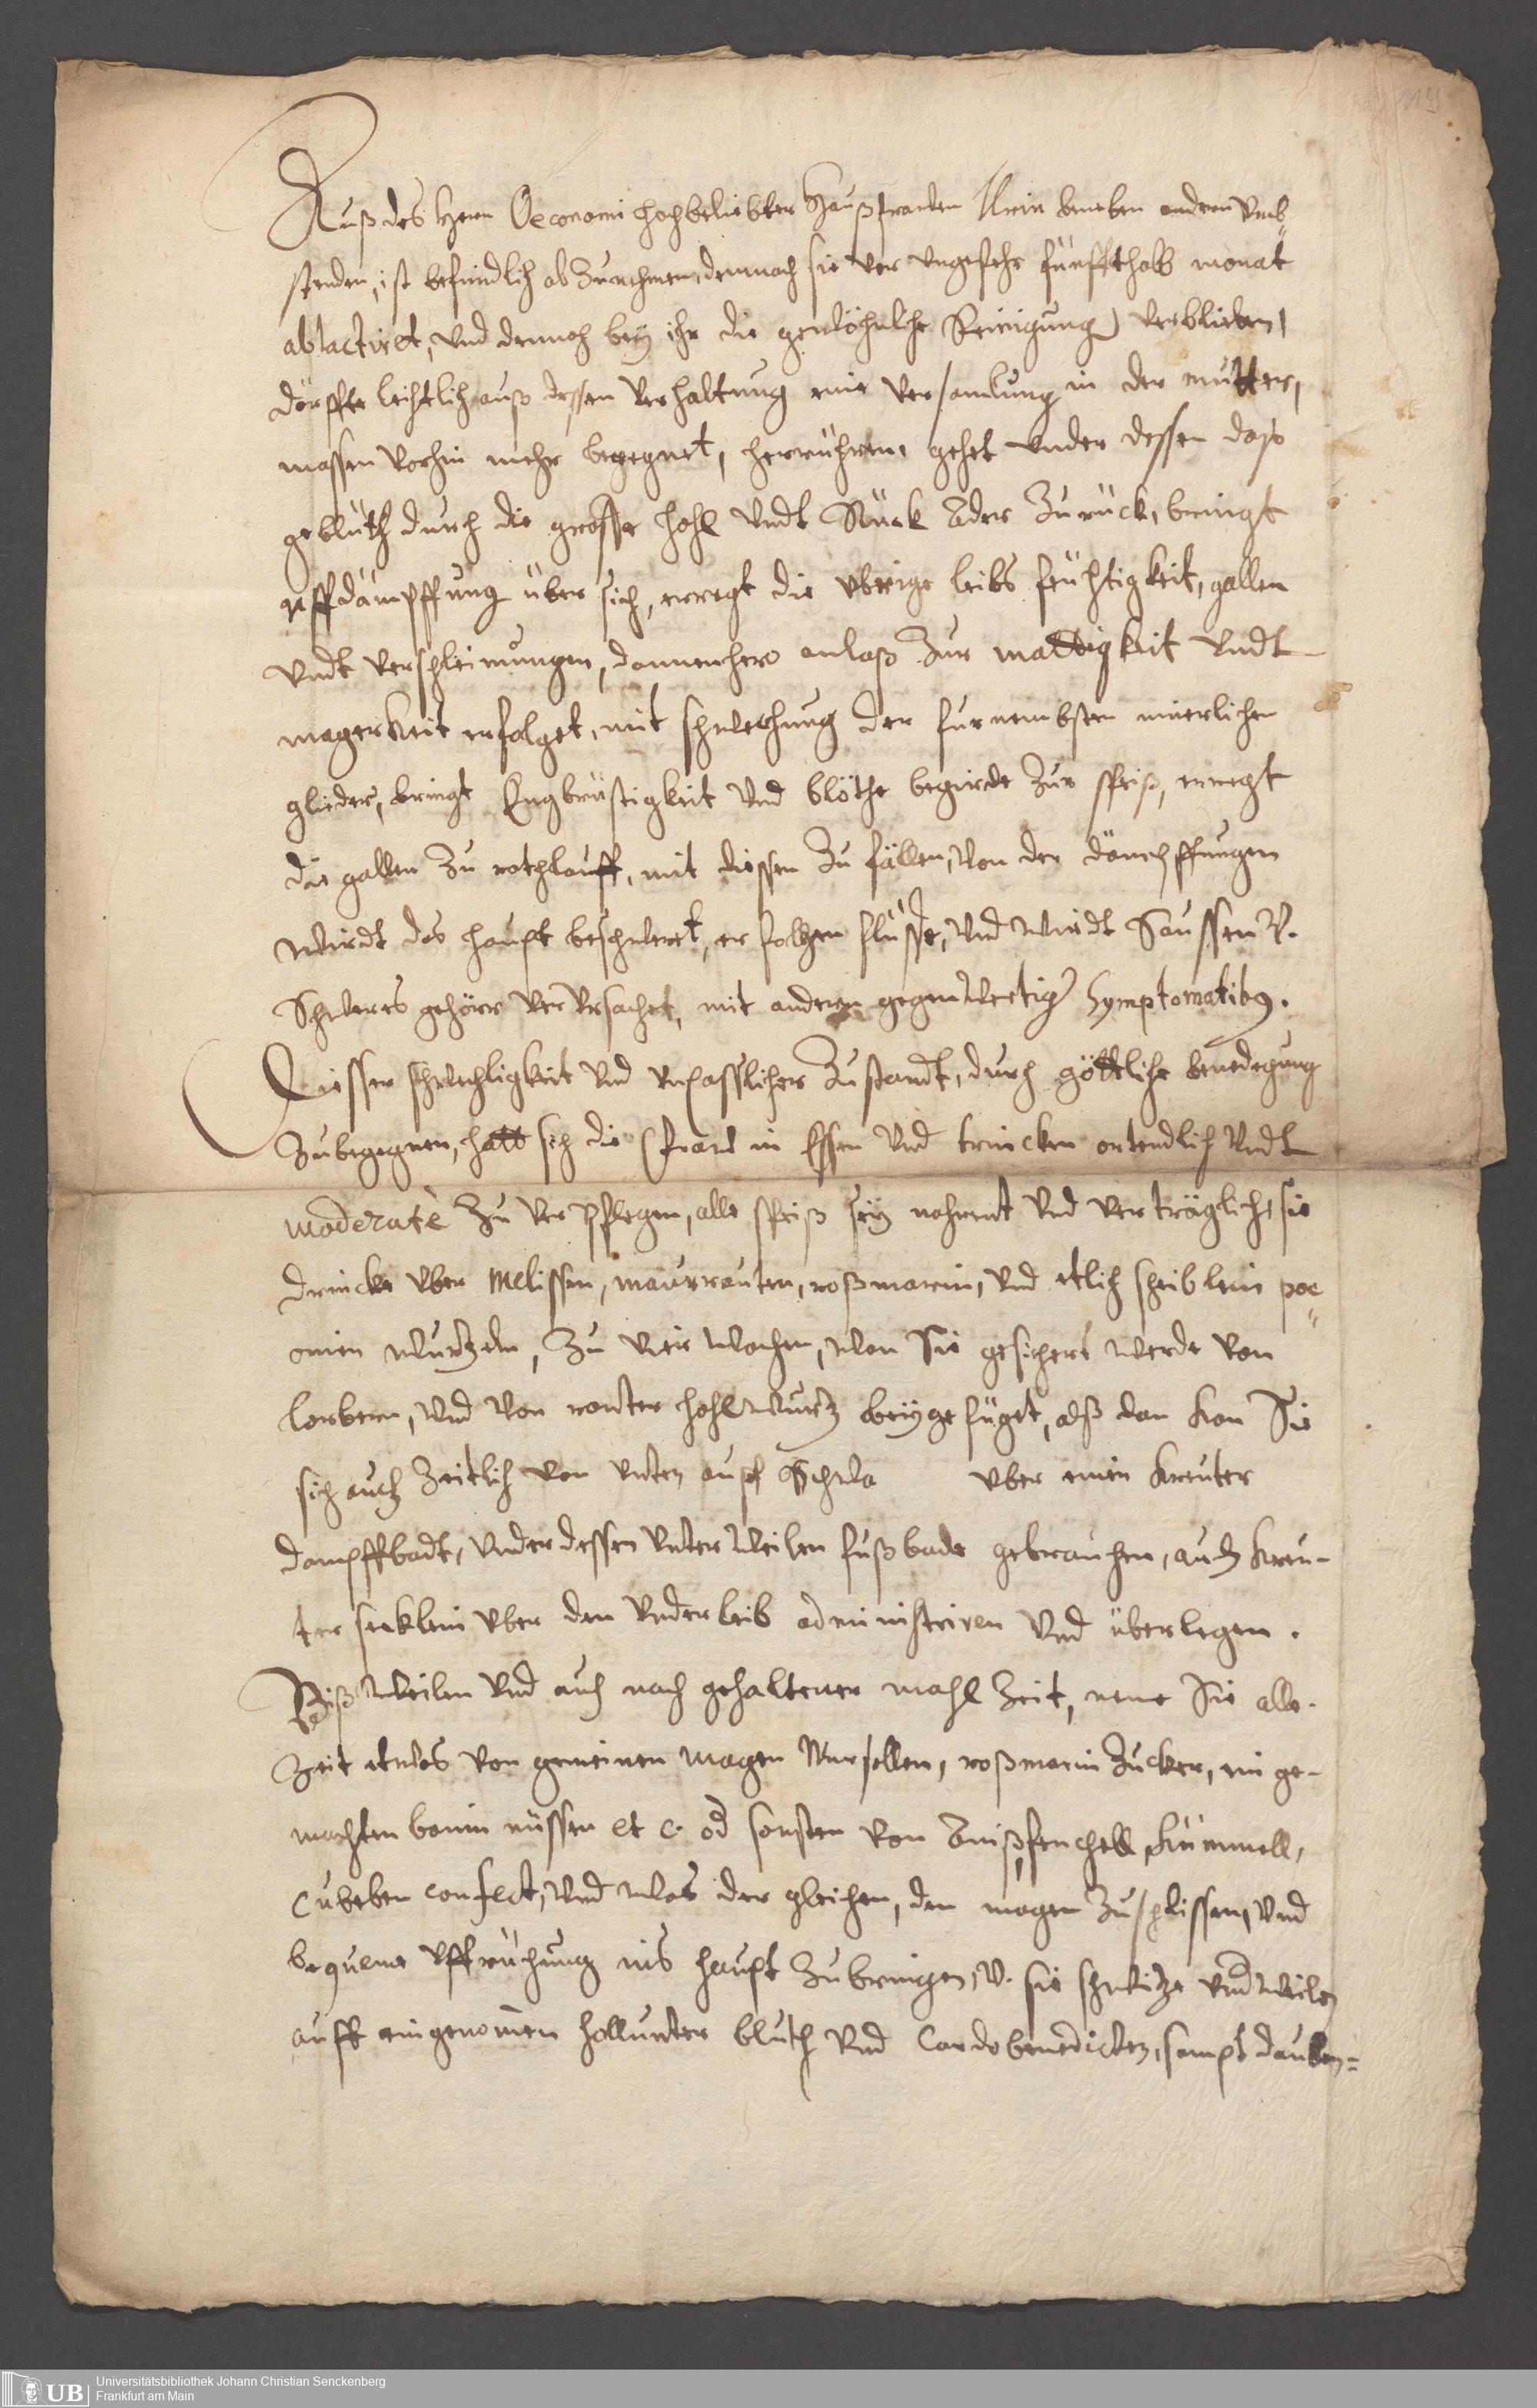 119
Auß des Herrn Oeconomi hochbeliebter Haußfrawen Urin beneben andern Umb-
stenden, ist befindlich abzunehmen, demnach sie vor ungefehr fünffthalb monat
ablactiret, und dennoch bey ihr die gewöhnliche Reinigung verblieben,
dörffte leichtlich auß dessen verhaltung eine versamlung in der mutter,
massen vorhin mehr begegnet, herrühren, gehet under dessen daß
geblüth durch die grosse hohl undt Rück Ader zurück, bringt
uffdämpffung über sich, erregt die übrige leibs feuchtigkeit, gallen
undt verschleimungen, dannenhero anlaß zur mattigkeit undt
magerkeit erfolget, mit schwechung der furnembsten innerlichen
glieder, bringt Engbrüstigkeit und blöthe begirde zur speiß, erregt
die gallen zu rothlauff, mit diessen zufällen, von der dämpffungen
wirdt das haupt beschweret, erfolgen flüsse, und wirdt Saussen u.
Schweres gehöre verursachet, mit anderen gegenwertigen Symptomatibus.
Diesser schwechligkeit und unpasslicher zustandt, durch göttliche benedeyung
zubegegnen, hatt sich die Fraw in Essen und trincken ortendlich undt
moderatè zu verpflegen, alle speiß sey nahrent und verträglich, sie
drincke uber Melissen, maurrauten, roßmarin, und etlich scheiblein poe-
onien wurtzeln, zu vier wochen, wan Sie gesichert werde von
lorbern, und von runter hohlwurtz beygefüget, alß dan kan Sie
sich auch zeitlich von unten auff uber einen Kreuter
dampffbadt, under dessen unterweilen fußbade gebrauchen, auch Kreu-
ter secklein uber den underleib administriren und überlegen.
Bißweilen und auch nach gehaltener mahlzeit, neme Sie alle-
zeit etwas von gemeinen magen Morsellen, roßmarin zucker, einge-
machten baum nüssen etc. od sonsten von Aniß, fenchell, Kümmell,
Cubeben confect, und was der gleichen, den magen zuschlissen, und
bequeme uffriechung ins haupt zubringen, u. sie schwitze underweilen
auff eingenomen hollunter bluth und Cardobenedicten, sampt dauben=
Universitätsbibliothek Johann Christian Senckenberg
Frankfurt am Main
UB